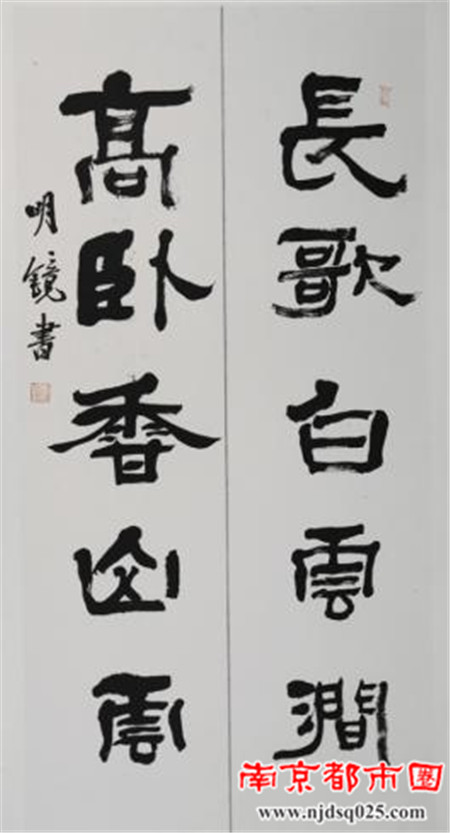 長歌白雲澗
高卧香山雲
明镜書
南京都市圈
www.njdsq025.com